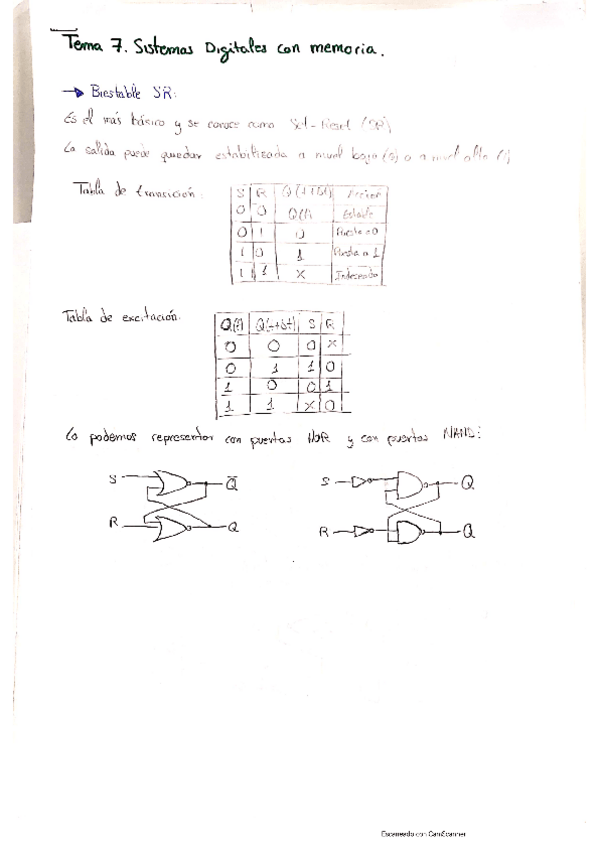 Tema 7. Sistemas Digitales con memoria.
→ Biestable SR:
Es el más básico y se conoce como Set-Reset (SR)
La salida puede quedar estabilizada a nivel bajo (0) o a nivel alto (1)
Tabla de transición:
S R Q(t+Δt)
0 0 Q(t) Estado
0 1 0 Puesta a 0
1 0 1 Puesta a 1
1 1 X Indeseado
Tabla de excitación:
Q(t) Q(t+Δt) S R
0 0 0 X
0 1 1 0
1 0 0 1
1 1 X 0
Lo podemos representar con puertas NOR y con puertas NAND:
S Q̅ S Q
R Q R Q
Escaneado con CamScanner